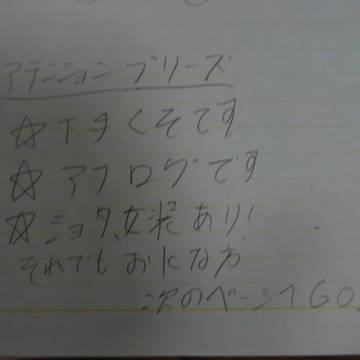 アテンション プリーズ
☆下手くそです
☆アナログです
☆ショタ、女装あり!
それでもおkな方
次のページへGO